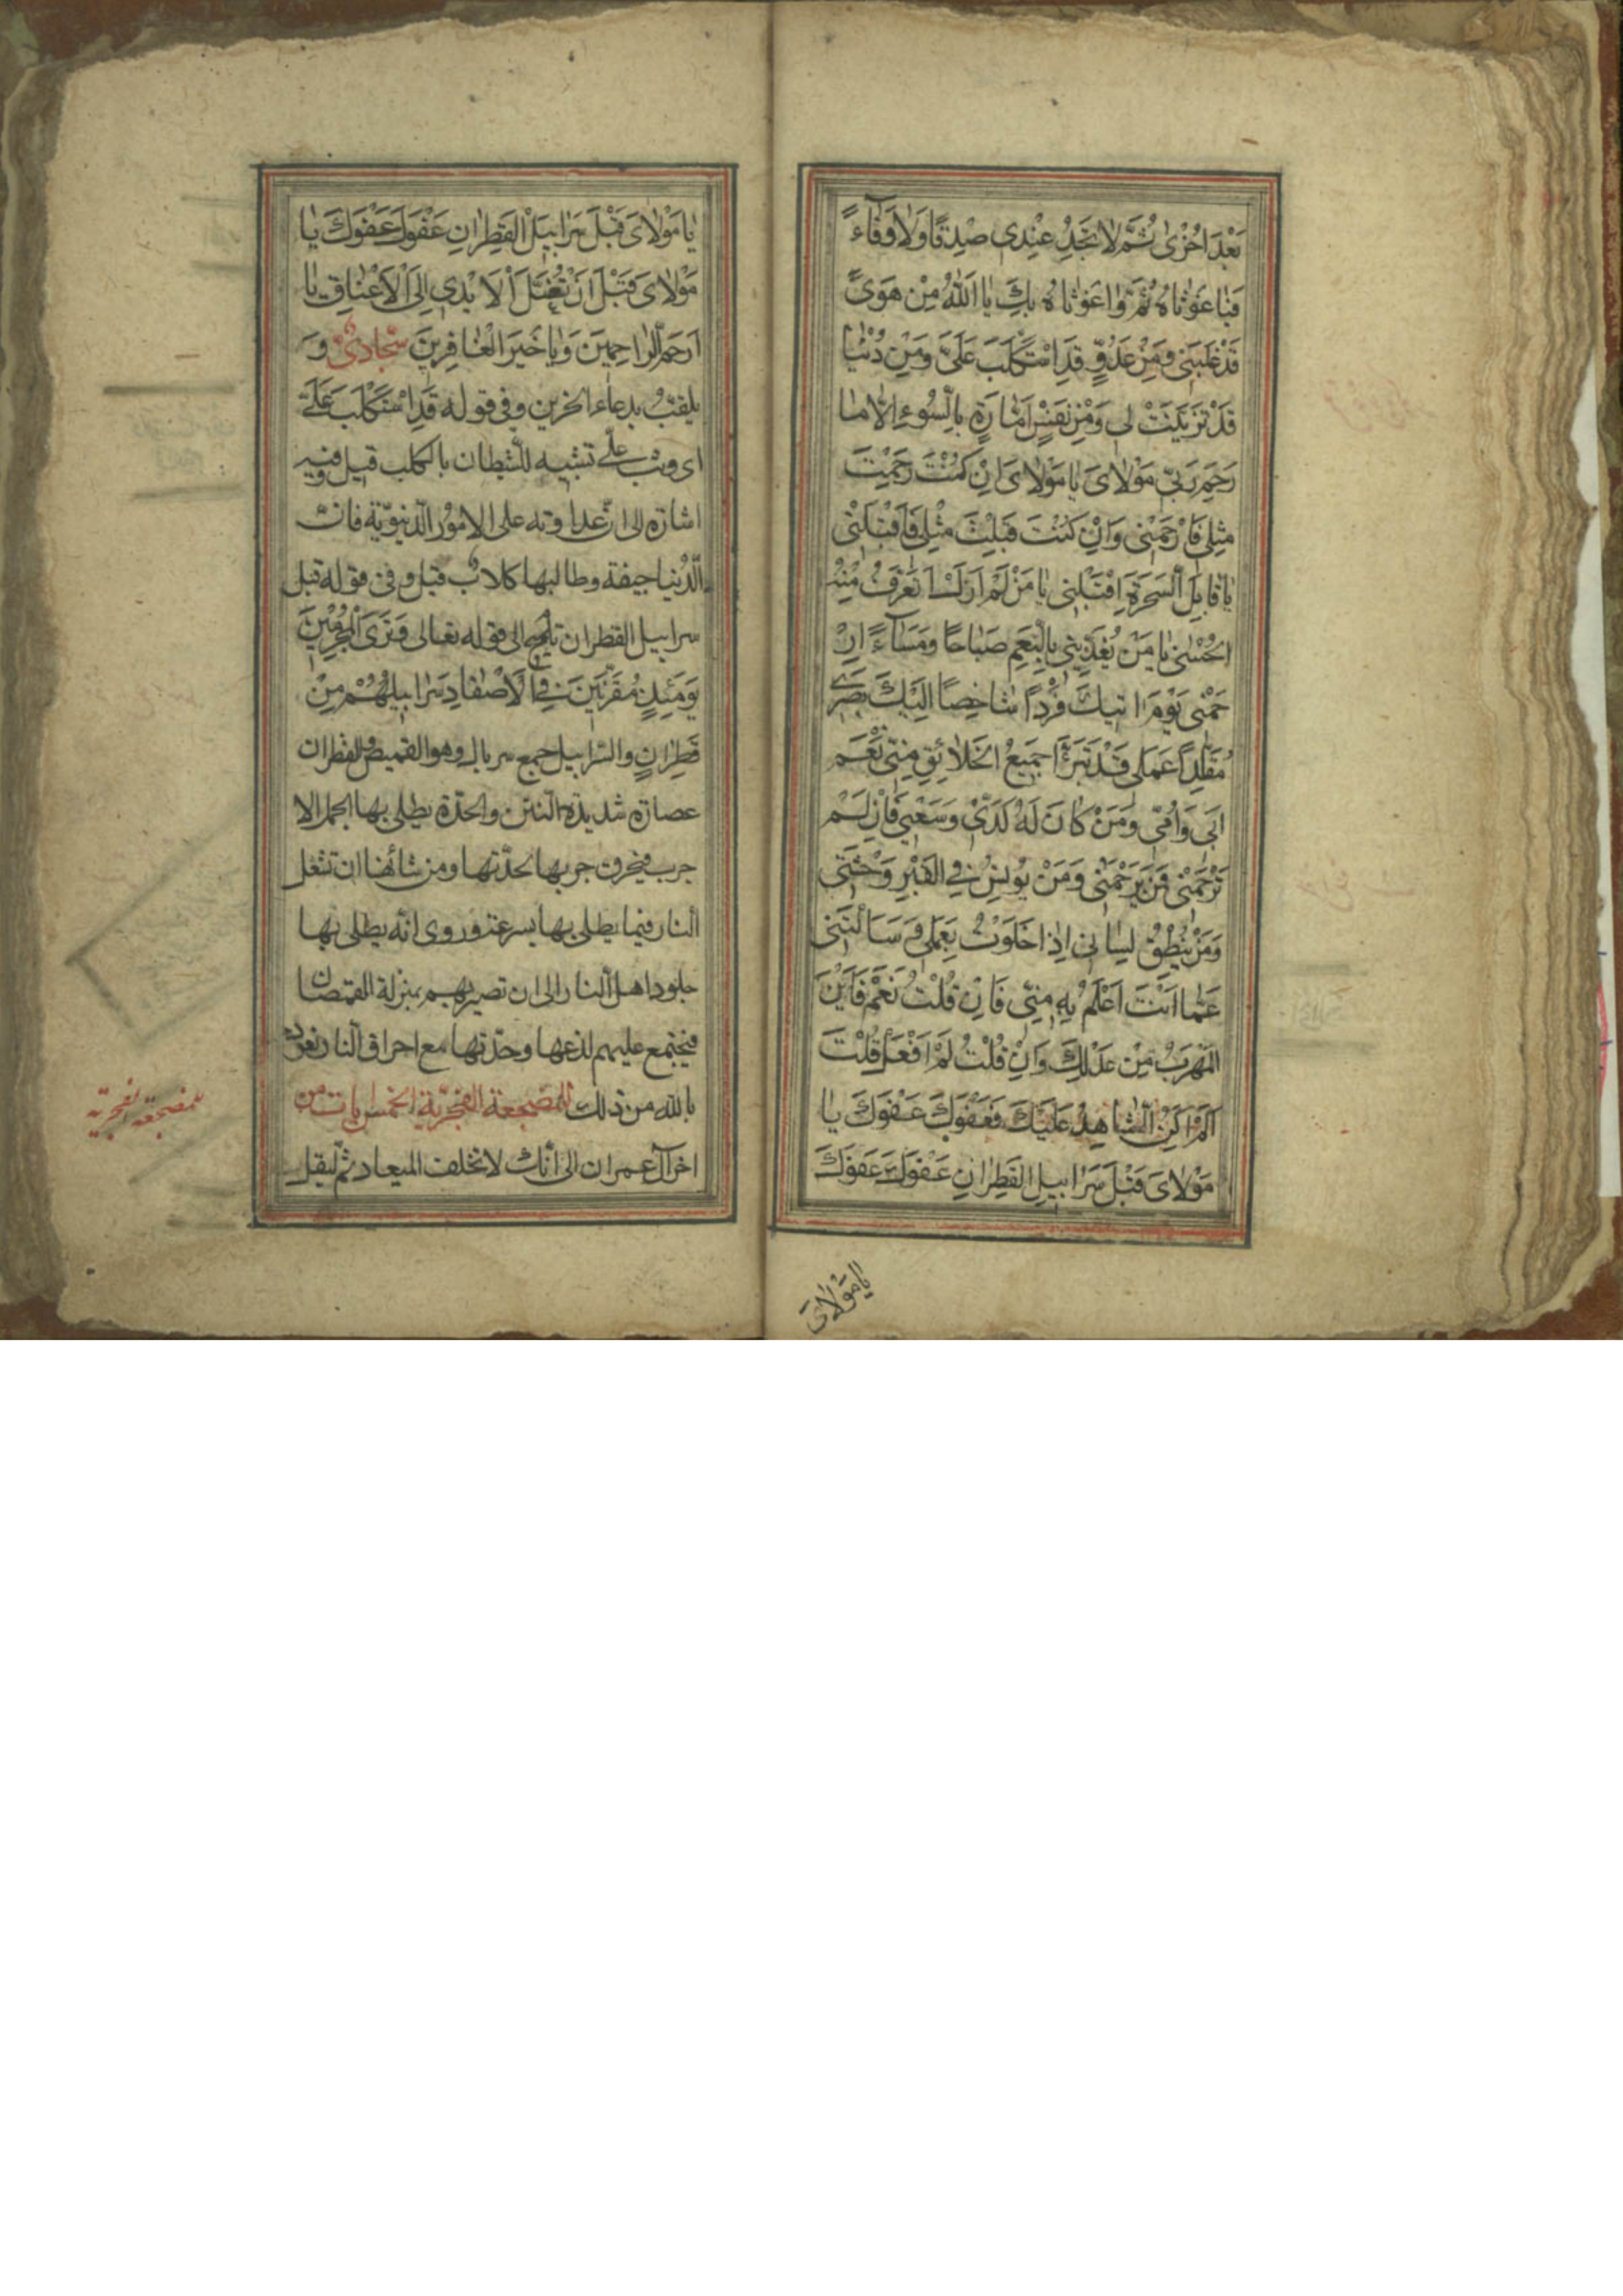 بَعْدَ اُخْرٰى ثُمَّ لَا تَجِدُ عِنْدِى صِدْقًا وَلَا وَفَآءً
فَيٰا غَوْثٰاهُ ثُمَّ وٰا غَوْثٰاهُ بِكَ يٰا اَللّٰهُ مِنْ هَوًى
قَدْ غَلَبَنِى وَمِنْ عَدُوٍّ قَدِ اسْتَكْلَبَ عَلَىَّ وَمِنْ دُنْيٰا
قَدْ تَزَيَّنَتْ لِى وَمِنْ نَفْسٍ اَمّٰارَةٍ بِالسُّوءِ اِلّٰا مٰا
رَحِمَ رَبِّى مَوْلٰاىَ يٰا مَوْلٰاىَ اِنْ كُنْتَ رَحِمْتَ
مِثْلِى فَارْحَمْنِى وَاِنْ كُنْتَ قَبِلْتَ مِثْلِى فَاقْبَلْنِى
يٰا قٰابِلَ السَّحَرَةِ اِقْبَلْنِى يٰا مَنْ لَمْ اَزَلْ اَتَعَرَّفُ مِنْهُ
الْحُسْنٰى يٰا مَنْ يُغَذِّينِى بِالنِّعَمِ صَبٰاحًا وَمَسٰآءً اِرْ
حَمْنِى يَوْمَ اٰتِيكَ فَرْدًا شٰاخِصًا اِلَيْكَ بَصَرِى
مُقَلَّدًا عَمَلِى قَدْ تَبَرَّأَ جَمِيعُ الْخَلٰائِقِ مِنِّى نَعَمْ
اَبِى وَاُمِّى وَمَنْ كٰانَ لَهُ كَدِّى وَسَعْيِى فَاِنْ لَمْ
تَرْحَمْنِى فَمَنْ يَرْحَمُنِى وَمَنْ يُونِسُ فِى الْقَبْرِ وَحْشَتِى
وَمَنْ يُنْطِقُ لِسٰانِى اِذٰا خَلَوْتُ بِعَمَلِى وَسَأَلْتَنِى
عَمّٰا اَنْتَ اَعْلَمُ بِهِ مِنِّى فَاِنْ قُلْتُ نَعَمْ فَاَيْنَ
الْمَهْرَبُ مِنْ عَدْلِكَ وَاِنْ قُلْتُ لَمْ اَفْعَلْ قُلْتَ
اَلَمْ اَكُنِ الشّٰاهِدَ عَلَيْكَ فَعَفْوَكَ عَفْوَكَ يٰا
مَوْلٰاىَ قَبْلَ سَرٰابِيلِ الْقَطِرٰانِ عَفْوَكَ عَفْوَكَ
يٰا مَوْلٰاىَ
يٰا مَوْلٰاىَ قَبْلَ سَرٰابِيلِ الْقَطِرٰانِ عَفْوَكَ عَفْوَكَ يٰا
مَوْلٰاىَ قَبْلَ اَنْ تُغَلَّ الْاَيْدِى اِلَى الْاَعْنٰاقِ يٰا
اَرْحَمَ الرّٰاحِمِينَ وَيٰا خَيْرَ الْغٰافِرِينَ سجّادىّ و
يلقب بدعاء الحزين وفى قوله قَدِ اسْتَكْلَبَ عَلَىَّ
اى وثب علىّ تشبيه للشيطان بالكلب قيل وفيه
اشارة الى ان عداوته على الامور الدنيويّة فانّ
الدّنيا جيفة وطالبها كلاب قيل وفى قوله قبل
سرابيل القطران تلميح الى قوله تعالى وَتَرَى الْمُجْرِمِينَ
يَوْمَئِذٍ مُقَرَّنِينَ فِى الْاَصْفٰادِ سَرٰابِيلُهُمْ مِنْ
قَطِرٰانٍ والسّرابيل جمع سربال وهو القميص والقطران
عصارة شديدة النتن والحدّة يطلى بها الجمل الا
جرب فيحرق جربها بحدّتها ومن شأنها ان تشعل
النار فيما يطلى بها بسرعة وروى انّه يطلى بها
جلود اهل النار الى ان تصير لهم بمنزلة القمصان
فيجتمع عليهم لذعها وحدّتها مع احراق النار نعوذ
بالله من ذلك للمضجعة الفجريّة الخمس ايات من
اخر آل عمران الى انّك لا تخلف الميعاد ثمّ ليقل
للمضجعة الفجريّة